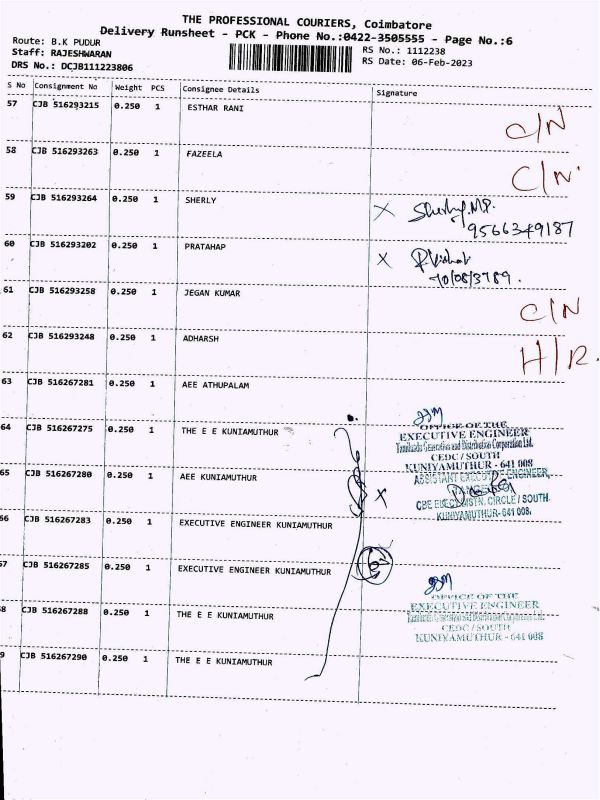 THE PROFESSIONAL COURIERS, Coimbatore
Delivery Runsheet - PCK - Phone No.:0422-3505555 - Page No.:6
Route: B.K PUDUR
Staff: RAJESHWARAN
DRS No.: DCJB111223806
RS No.: 1112238
RS Date: 06-Feb-2023
S No Consignment No Weight PCS Consignee Details Signature
57 CJB 516293215 0.250 1 ESTHAR RANI C/N
58 CJB 516293263 0.250 1 FAZEELA C/N
59 CJB 516293264 0.250 1 SHERLY X Sherly.M.P.
9566349187
60 CJB 516293202 0.250 1 PRATAHAP X
61 CJB 516293258 0.250 1 JEGAN KUMAR C/N
62 CJB 516293248 0.250 1 ADHARSH H/R.
63 CJB 516267281 0.250 1 AEE ATHUPALAM
64 CJB 516267275 0.250 1 THE E E KUNIAMUTHUR
OFFICE OF THE
EXECUTIVE ENGINEER
Tamilnadu Generation and Distribution Corporation Ltd.
CEDC / SOUTH
KUNIYAMUTHUR - 641 008
65 CJB 516267280 0.250 1 AEE KUNIAMUTHUR X
ASSISTANT EXECUTIVE ENGINEER,
CBE ELEC. DISTN. CIRCLE / SOUTH
KUNIYAMUTHUR- 641 008.
66 CJB 516267283 0.250 1 EXECUTIVE ENGINEER KUNIAMUTHUR
67 CJB 516267285 0.250 1 EXECUTIVE ENGINEER KUNIAMUTHUR
8 CJB 516267288 0.250 1 THE E E KUNIAMUTHUR
OFFICE OF THE
EXECUTIVE ENGINEER
Tamilnadu Generation and Distribution Corporation Ltd.
CEDC / SOUTH
KUNIYAMUTHUR - 641 008
9 CJB 516267290 0.250 1 THE E E KUNIAMUTHUR